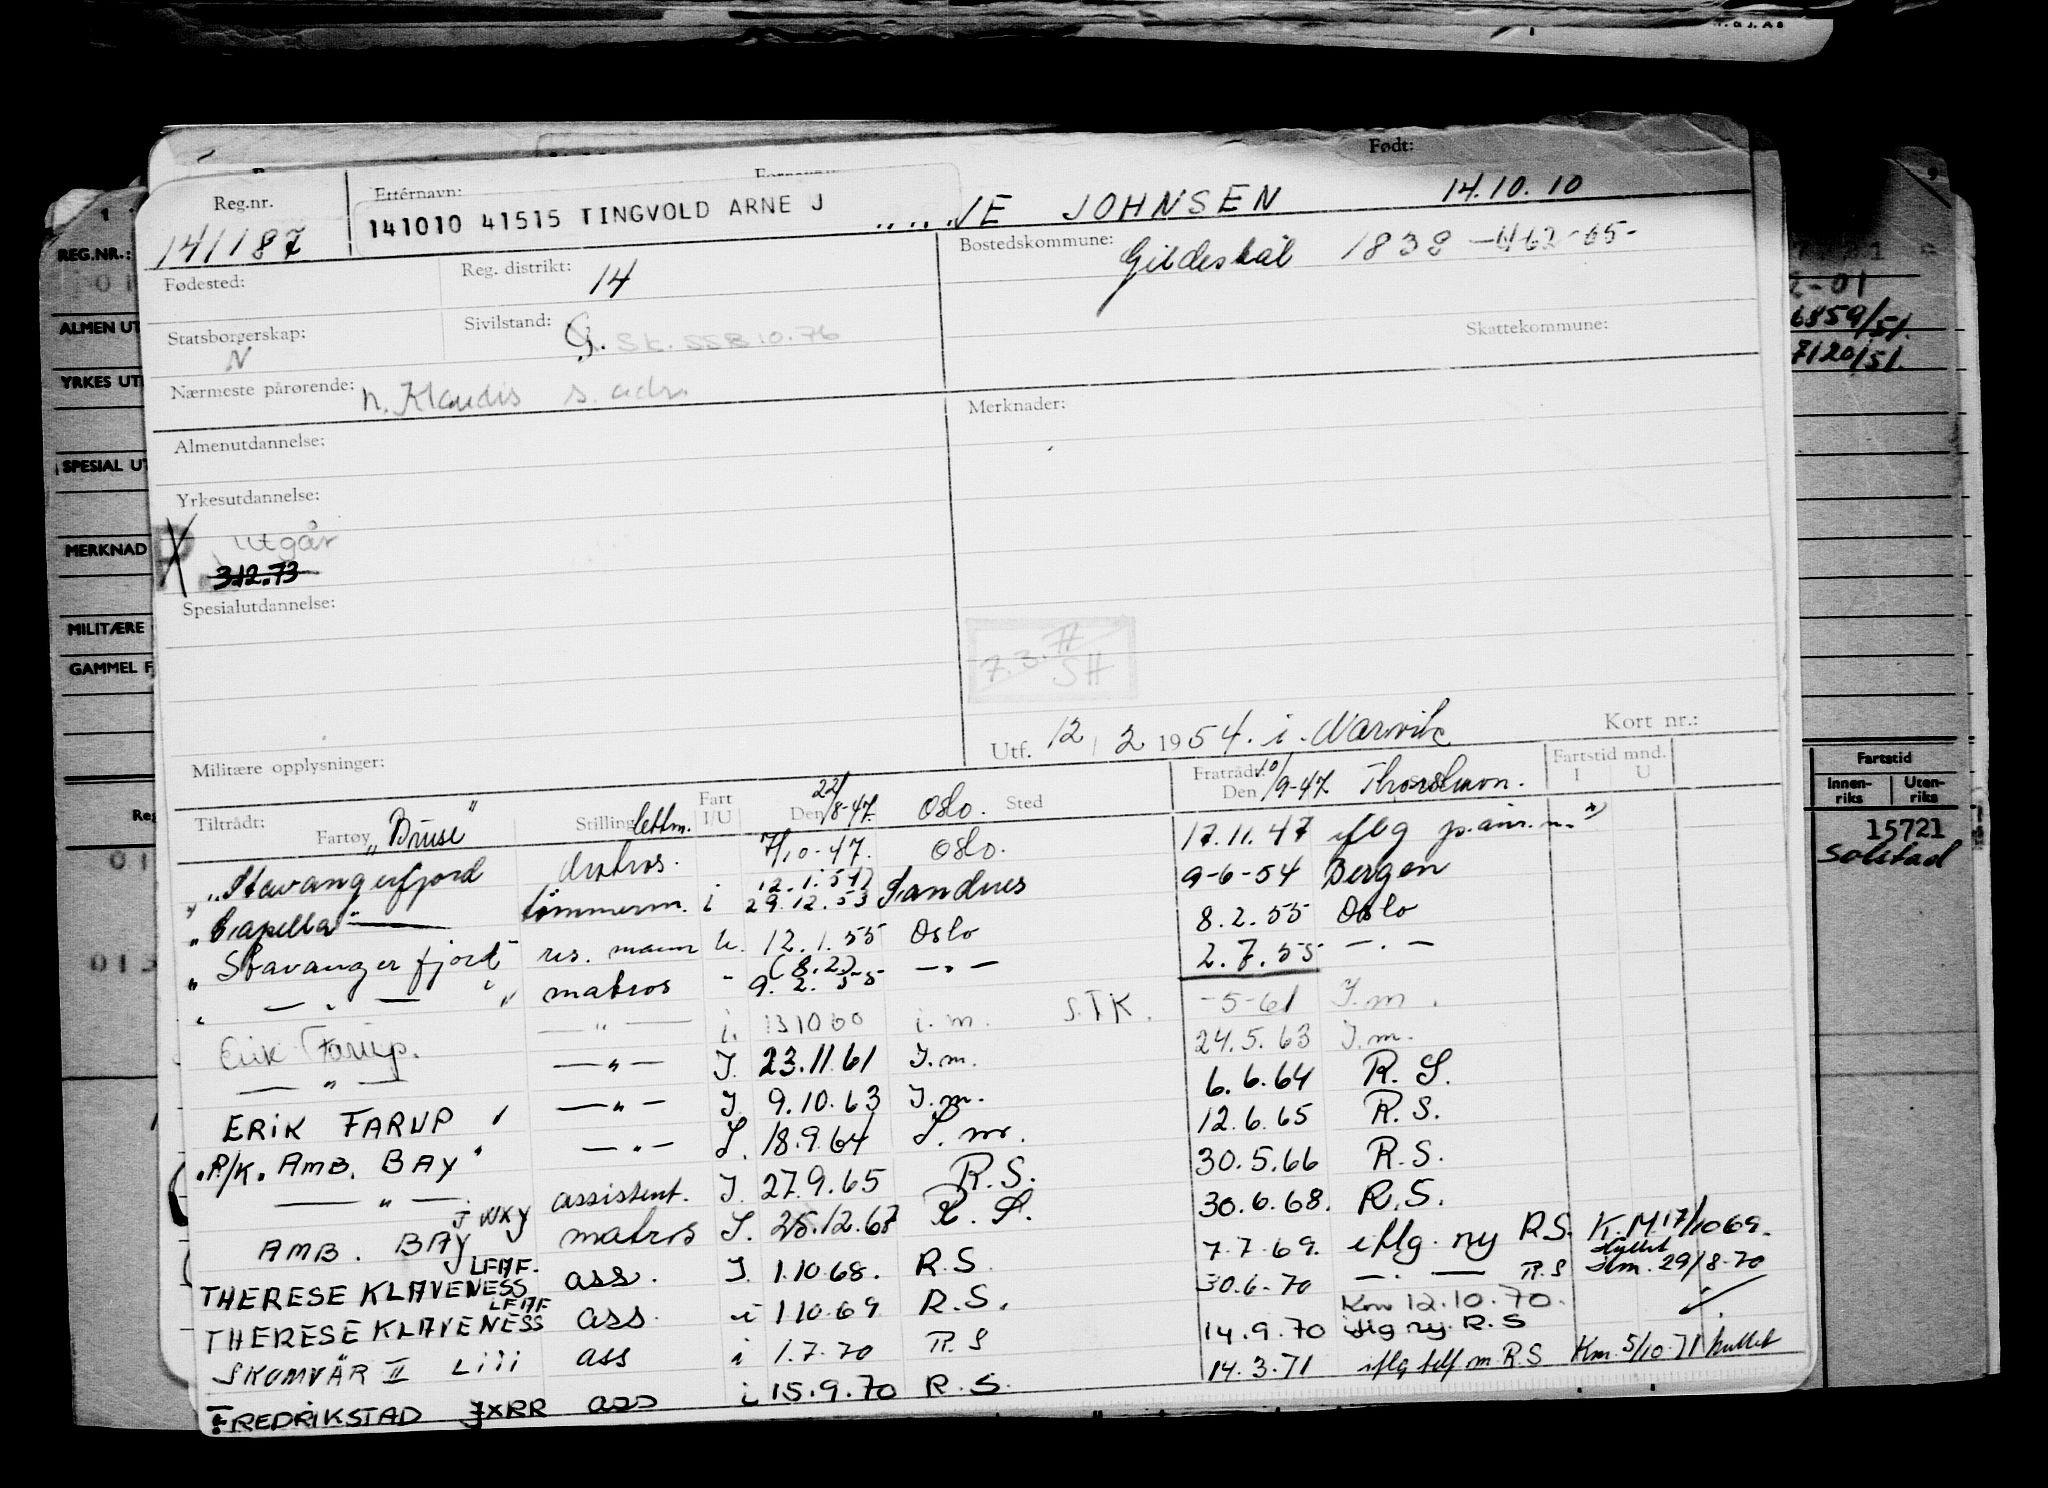 Reg.nr.
141187
Etternavn:
141010 41515 TINGVOLD ARNE J
NE JOHNSEN
Født:
14.10.10
Fødested:
Reg. distrikt: 14
Bostedskommune: Gildeskål 1838
Statsborgerskap: N
Sivilstand: G. Sk. SSB 10.76
Skattekommune:
Nærmeste pårørende: h. Klaudis s. adr.
Merknader:
Almenutdannelse:
Yrkesutdannelse:
Utgår
3.12.73
Spesialutdannelse:
7.3.71
SH
Utf. 12 / 2 1954. i. Narvik
Kort nr.:
Militære opplysninger:
Tiltrådt: Fartøy Stilling Fart I/U Den Sted Fratrådt: Den Fartstid mnd. I U
"Bruse" lettm. 22/8-47. Oslo. 10/9-47
"Stavangerfjord matros. 7/10-47. Oslo. 17.11.47 iflg
"Capella" tømmerm. i 12.1.54) 29.12.53 Sandnes 9-6-54 Bergen
"Stavangerfjord" res. mann u. 12.1.55 Oslo 8.2.55 Oslo
" — " — " matros " (8.2) 9.2.55 — " — 2.7.55 — . —
Erik Farup. — " — i. 131060 i. m. S.T.K. -5-61 I.m.
— " — — " — I. 23.11.61 I.m. 24.5.63 I.m.
ERIK FARUP — " — I. 9.10.63 I.m. 6.6.64 R.S.
"R/K. AMB. BAY" — " — I. 18.9.64 I.m. 12.6.65 R.S.
— " — assistent. I. 27.9.65 R.S. 30.5.66 R.S.
AMB. BAY JWXY matros I. 28.12.67 R.S. 30.6.68. R.S.
THERESE KLAVENESS LEAF. ass. I. 1.10.68. R.S. 7.7.69. iflg. ny R.S. K.M. 17/1069.
THERESE KLAVENESS LEAF ass. i 1.10.69 R.S. 30.6-70 — . — R.S 29/8-70
SKOMVÄR II LIII ass i 1.7.70 R.S 14.9.70 iflg ny. R.S Km 12.10.70.
FREDRIKSTAD JXRR ass i 15.9.70 R.S. 14.3.71 iflg tlf m R.S Km. 5/10.71 hullet
REG.NR.:
ALMEN UT
YRKES UT
SPESIAL UT
MERKNAD
MILITÆRE
GAMMEL F
Reg
2-01
6859/51.
7120/51.
Fartstid
Innen-riks
Uten-riks
15721
Solstad